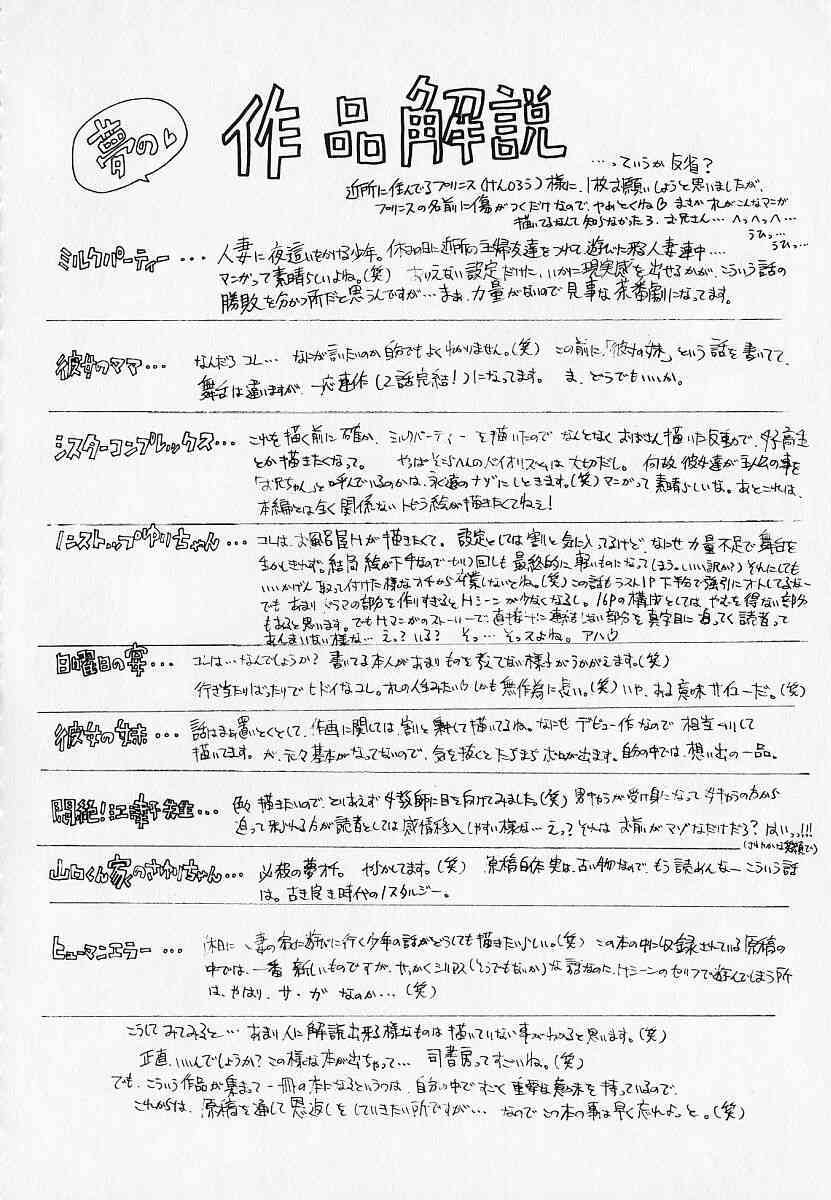 夢の
作品解説
…っていうか反省?
近所に住んでるプリンス(けんじろう)様に、1枚お願いしようと思いましたが、
プリンスの名前に傷がつくだけなので、やめとくね
描いてるなんて知らなかったろ、お兄さん…へっへっへ…
うひっ…
うひっ…
ミルクパーティー… 人妻に夜這いをかける少年。休日の日に近所の主婦友達をつれて遊びに来る人妻連中…
マンガって素晴らしいよね。(笑) ありえない設定だけに、いかに現実感を出せるかが、こういう話の
勝敗を分かつ所だと思うんですが…まあ、力量がないので見事な茶番劇になってます。
彼女のママ… なんだろコレ… なにが言いたいのか自分でもよくわかりません。(笑) この前に、「彼女の妹」という話を書いてて、
舞台は違いますが、一応連作(2話完結!)になってます。 ま、どうでもいいか。
シスターコンプレックス… これを描く前に確か、ミルクパーティーを描いたので なんとなくおばさん描いた反動で、女子高生
とか描きたくなって。 やっぱそこらへんのバイオリズムは大切だし。 何故彼女達が主人公の事を
「お兄ちゃん」と呼んでいるのかは、永遠のナゾにしときます。(笑) マンガって素晴らしいな。あとこれは、
本編とは全く関係ないトビラ絵が描きたくてねえ!
ノンストップゆりちゃん… コレは、お風呂屋Hが描きたくて。 設定としては割と気に入ってるけど、なにせ力量不足で舞台を
生かしきれず。結局絵が下手なのでセリフ回しも最終的に軽いものになってしまう。(いい訳か?) それにしても
いいかげん取って付けた様なオチから卒業しないとね。(笑) この話もラスト1P下手で強引にオトしてるな〜
でも あまりドラマの部分を作りすぎるとHシーンが少なくなるし。16Pの構成としては、やむを得ない部分
もあると思います。でもHマンガのストーリーで、直接Hに関係ない部分を真面目に追ってく読者って
あんまいない様な… えっ?いる? そっ…そっスよね。アハハ
日曜日の宴… コレは…なんでしょうか? 書いてる本人があまりものを考えてない様子がうかがえます。(笑)
行き当たりばったりでヒドイなコレ。オレの人生みたい しかも無作為に長い。(笑) いや、ある意味サイコーだ。(笑)
彼女の妹… 話はまあ置いとくとして、作画に関しては割と解して描いてるね。なにせデビュー作なので 相当
描いてます。が、元々基本がなってないので、気を抜くとたちまちボロが出ます。自分の中では、想い出の一品。
悶絶!江幸子先生… 色々描きたいので、とりあえず女教師に目を向けてみました。(笑) 男キャラが受け身になって女キャラの方から
迫って来られる方が読者としては感情移入しやすい様な…えっ?そんなのお前がマゾなだけだろ? はいっっ!!!
(さわやかな笑顔で)
山口くん家のさやりちゃん… 必殺の夢オチ。 やらかしてます。(笑) 原稿自体実は、古い物なので、もう読めんな〜こういう話
は。古き良き時代のノスタルジー。
ヒューマンエラー… 人妻の家に遊びに行く少年の話がどうしても描きたいらしい。(笑) この本の中に収録されている原稿の
中では、一番新しいものですが、せっかくシリアス(どうでもないか)な話なのに、Hシーンのセリフで遊んでしまう所
は、やはり、サ・ガなのか…(笑)
こうしてみてみると… あまり人に解説出来る様なものは描いていない事がわかると思います。(笑)
正直、いいんでしょうか?この様な本が出ちゃって… 司書房ってすごいね。(笑)
でも、こういう作品が集まって一冊の本になるというのは、自分の中ですごく重要な意味を持っているので、
これからは、原稿を通して恩返しをしていきたい所ですが… なのでこの本の事は早く忘れよっと。(笑)